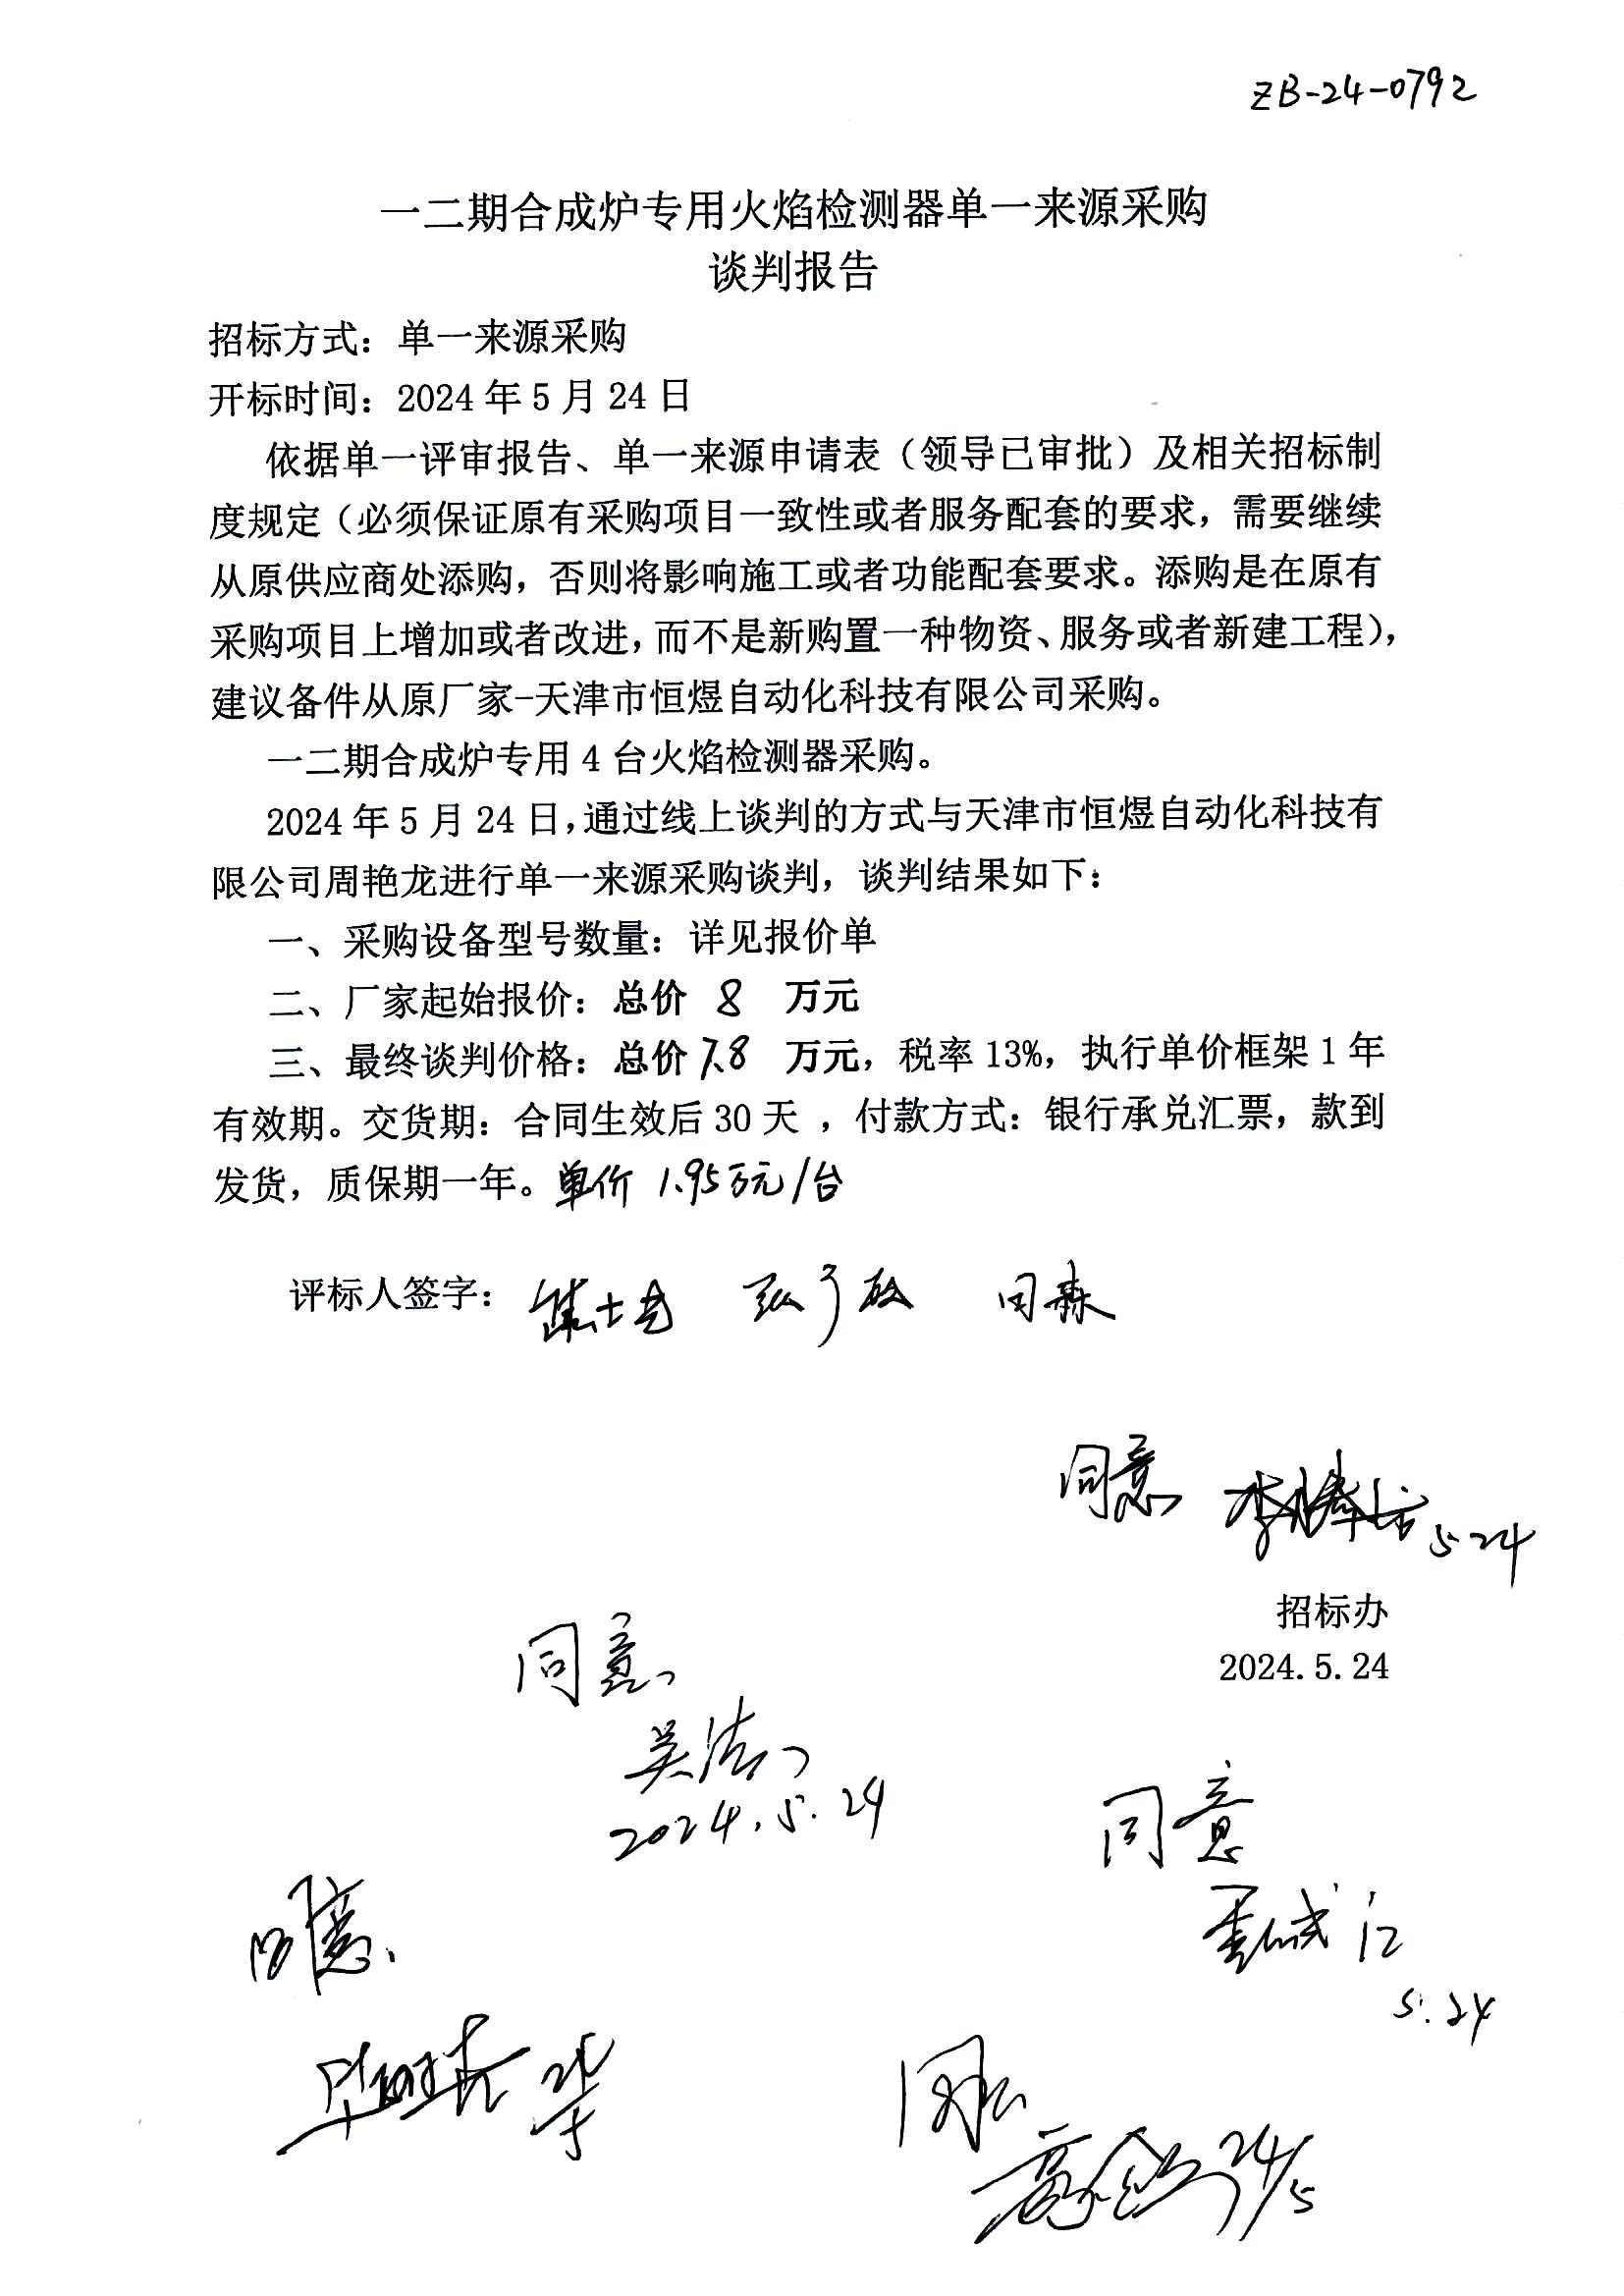 ZB-24-0792
一二期合成炉专用火焰检测器单一来源采购
谈判报告
招标方式：单一来源采购
开标时间：2024年5月24日
依据单一评审报告、单一来源申请表（领导已审批）及相关招标制
度规定（必须保证原有采购项目一致性或者服务配套的要求，需要继续
从原供应商处添购，否则将影响施工或者功能配套要求。添购是在原有
采购项目上增加或者改进，而不是新购置一种物资、服务或者新建工程），
建议备件从原厂家-天津市恒煜自动化科技有限公司采购。
一二期合成炉专用4台火焰检测器采购。
2024年5月24日，通过线上谈判的方式与天津市恒煜自动化科技有
限公司周艳龙进行单一来源采购谈判，谈判结果如下：
一、采购设备型号数量：详见报价单
二、厂家起始报价：总价 8 万元
三、最终谈判价格：总价 7.8 万元，税率13%，执行单价框架1年
有效期。交货期：合同生效后30天 ，付款方式：银行承兑汇票，款到
发货，质保期一年。单价 1.95万元/台
评标人签字：
同意 5.24
招标办
2024.5.24
同意
2024.5.24
同意
5.24
同意
同意
24/5